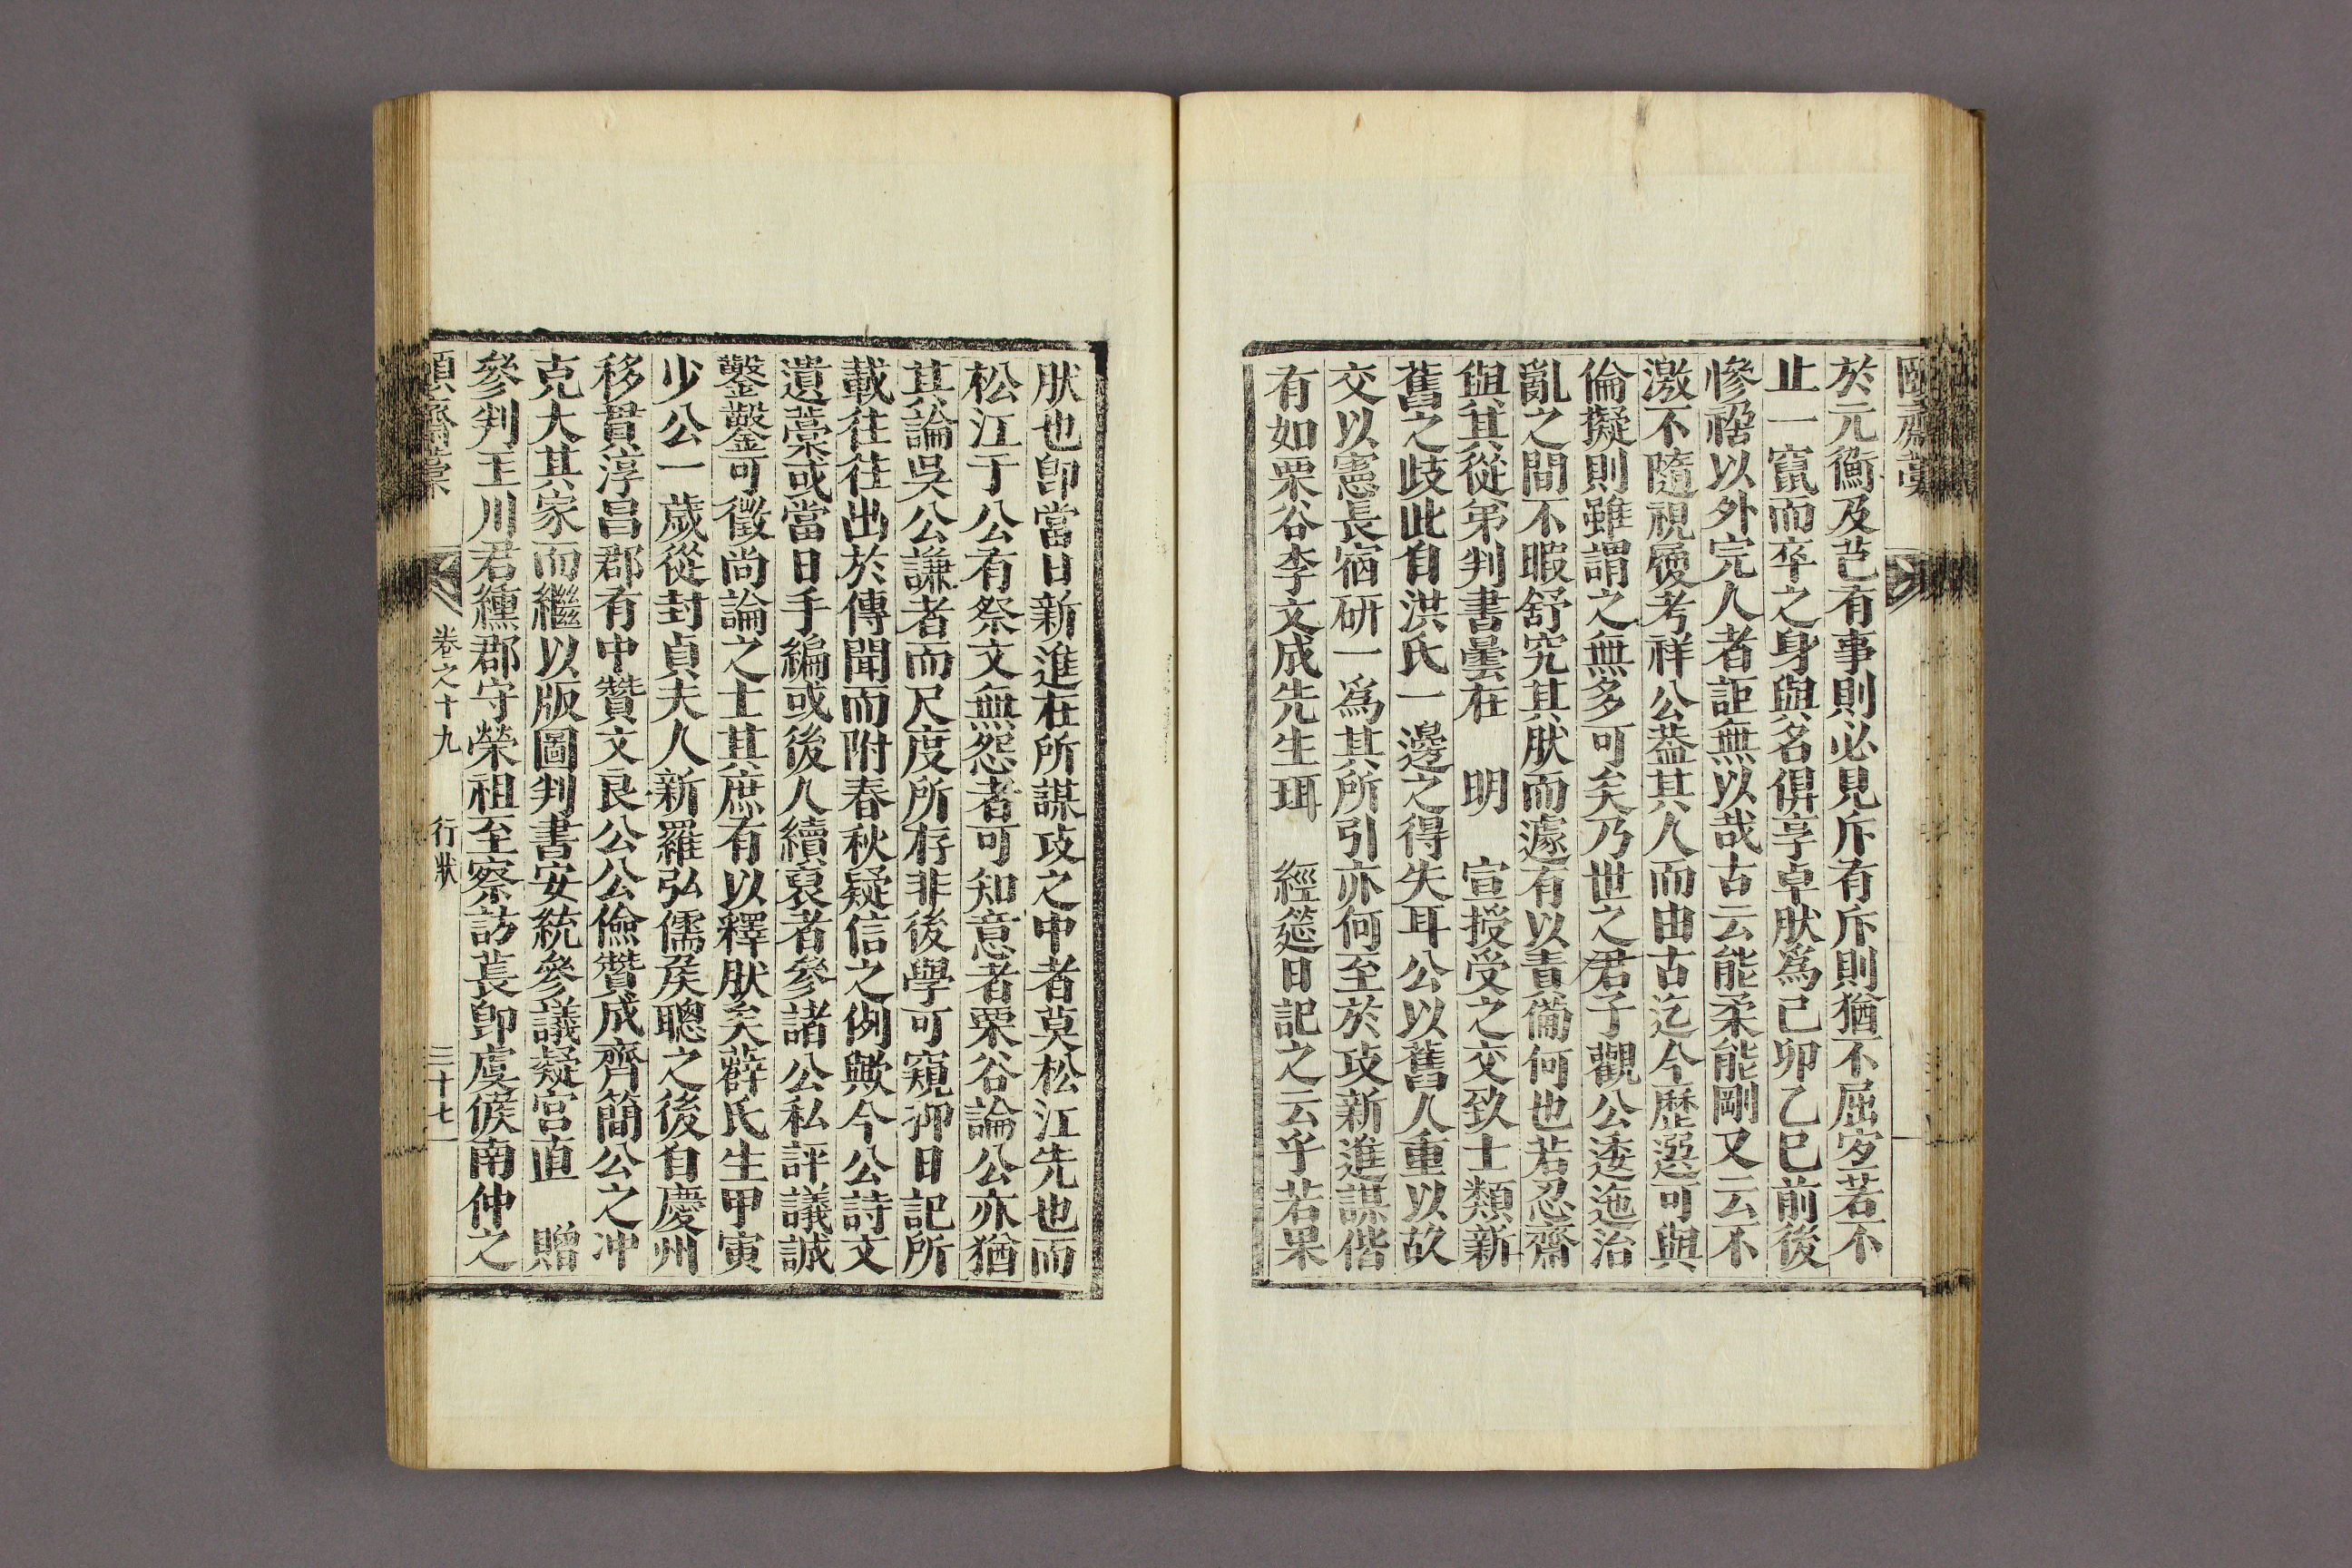 於元衡及芑有事則必見斥有斥則猶不屈岁若不
止一竄而卒之身與名俱享卓肰爲己卯乙巳前後
慘禍以外完人者詎無以哉古云能柔能剛又云不
激不隨視履考祥公葢其人而由古迄今歷選可與
倫擬則雖謂之無多可矣乃世之君子觀公逶迤治
亂之間不暇舒究其肰而遽有以責備何也若忍齋
與其從弟判書曇在 明 宣授受之交致士類新
舊之歧此自洪氏一邊之得失耳公以舊人重以故
交以憲長宿研一爲其所引亦何至於攻新進謀偕
有如栗谷李文成先生珥 經筵日記之云乎若果
肰也卽當日新進在所謀攻之中者莫松江先也而
松江于公有祭文無怨者可知意者栗谷論公亦猶
其論吳公謙者而尺度所存非後學可窺抑日記所
載往往出於傳聞而附春秋疑信之例歟今公詩文
遺藁或當日手編或後人續裒者參諸公私評議誠
鑿鑿可徵尚論之士其庶有以釋肰矣薛氏生甲寅
少公一歲從封貞夫人新羅弘儒矦聰之後自慶州
移貫淳昌郡有中贊文良公公儉贊成齊簡公之冲
克大其家而繼以版圖判書安統參議凝宮直 贈
參判玉川君纁郡守榮祖至察訪萇卽虞候南仲之
卷之十九 行狀 三十七